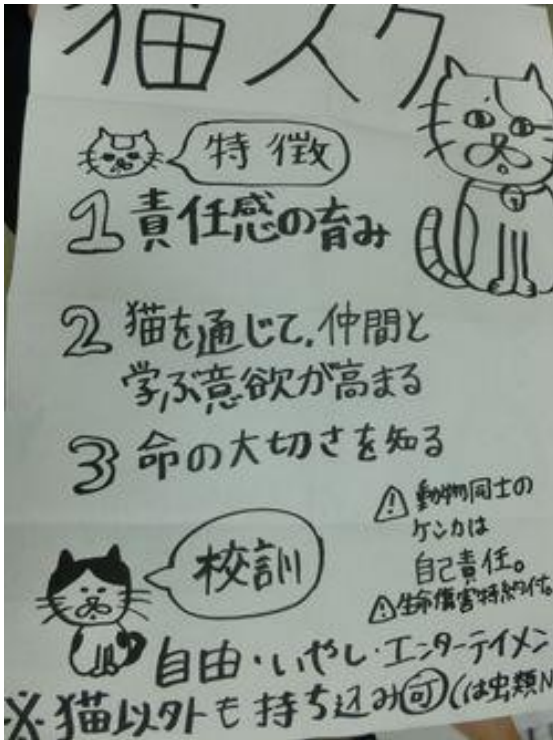 猫スク
特徴
1 責任感の育み
2 猫を通じて、仲間と
学ぶ意欲が高まる
3 命の大切さを知る
⚠動物同士の
ケンカは
自己責任。
⚠生命傷害特約付。
校訓
自由・いやし・エンターテイメン
※猫以外も持ち込み可(は虫類N